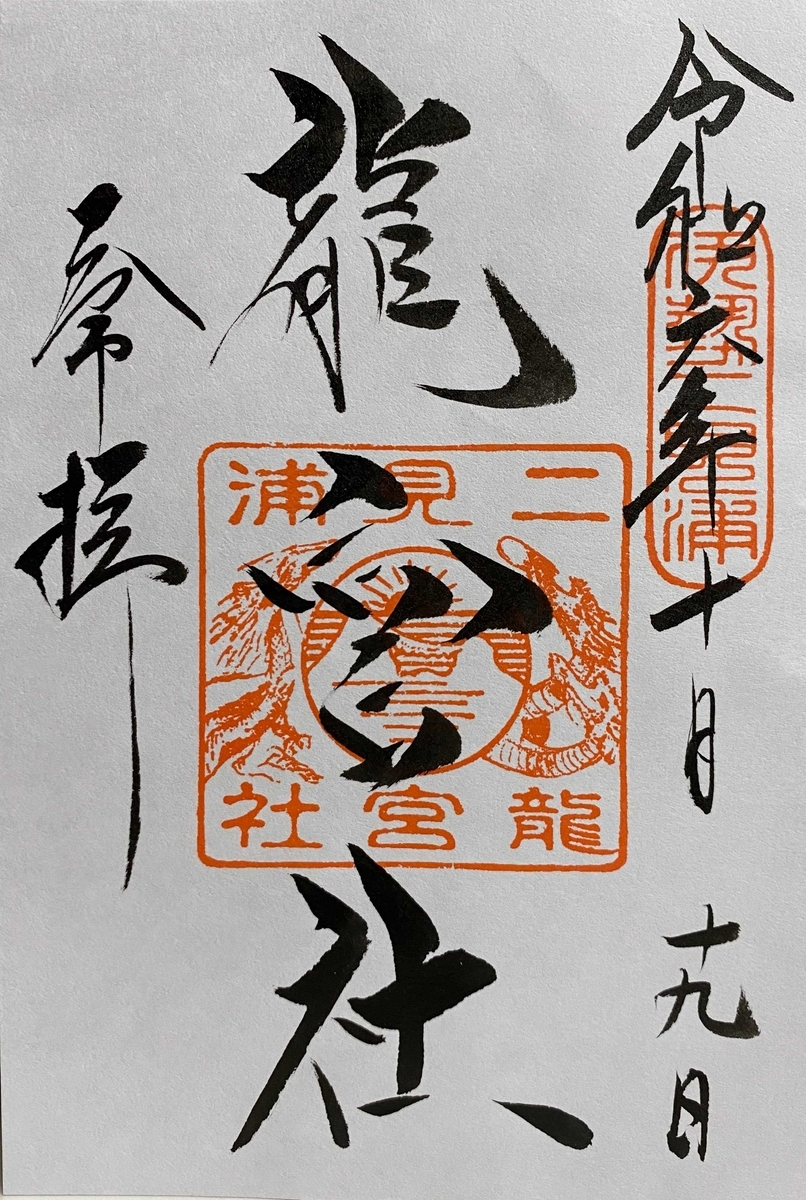 令和六年十月十九日
伊勢二見浦
龍宮社
二見浦
龍宮社
奉拝